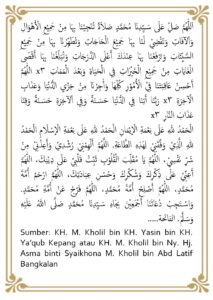 اَللّٰهُمَّ صَلِّ عَلَى سَيِّدِنَا مُحَمَّدٍ صَلَاةً تُنْجِيْنَا بِهَا مِنْ جَمِيْعِ الْأَهْوَالِ
وَالْآفَاتِ وَتَقْضِيْ لَنَا بِهَا جَمِيْعَ الْحَاجَاتِ وَتُطَهِّرُنَا بِهَا مِنْ جَمِيْعِ
السَّيِّئَاتِ وَتَرْفَعُنَا بِهَا عِنْدَكَ أَعْلَى الدَّرَجَاتِ وَتُبَلِّغُنَا بِهَا أَقْصَى
الْغَايَاتِ مِنْ جَمِيْعِ الْخَيْرَاتِ فِي الْحَيَاةِ وَبَعْدَ الْمَمَاتِ x٣ اَللّٰهُمَّ
أَحْسِنْ عَاقِبَتَنَا فِي الْأُمُوْرِ كُلِّهَا وَأَجِرْنَا مِنْ خِزْيِ الدُّنْيَا وَعَذَابِ
الْآخِرَةِ x٣ رَبَّنَا آتِنَا فِي الدُّنْيَا حَسَنَةً وَفِي الْآخِرَةِ حَسَنَةً وَقِنَا
عَذَابَ النَّارِ x٣
اَلْحَمْدُ لِلّٰهِ عَلَى نِعْمَةِ الْإِيْمَانِ اَلْحَمْدُ لِلّٰهِ عَلَى نِعْمَةِ الْإِسْلَامِ اَلْحَمْدُ
لِلّٰهِ الَّذِيْ وَفَّقَنِيْ لِهٰذِهِ الطَّاعَةِ. اَللّٰهُمَّ أَلْهِمْنِيْ رُشْدِيْ وَأَعِذْنِيْ مِنْ
شَرِّ نَفْسِيْ، اَللّٰهُمَّ يَا مُقَلِّبَ الْقُلُوْبِ ثَبِّتْ قَلْبِيْ عَلَى دِيْنِكَ، اَللّٰهُمَّ
أَعِنِّيْ عَلَى ذِكْرِكَ وَشُكْرِكَ وَحُسْنِ عِبَادَتِكَ، اَللّٰهُمَّ ارْحَمْ أُمَّةَ
مُحَمَّدٍ، اَللّٰهُمَّ أَصْلِحْ أُمَّةَ مُحَمَّدٍ، اَللّٰهُمَّ فَرِّجْ عَنْ أُمَّةِ مُحَمَّدٍ،
وَاسْتَجِبْ دُعَائَنَا أَجْمَعِيْنَ بِجَاهِ سَيِّدِنَا مُحَمَّدٍ صَلَّى اللّٰهُ عَلَيْهِ
وَسَلَّمَ. الفاتحة.....
Sumber: KH. M. Kholil bin KH. Yasin bin KH.
Ya'qub Kepang atau KH. M. Kholil bin Ny. Hj.
Asma binti Syaikhona M. Kholil bin Abd Latif
Bangkalan